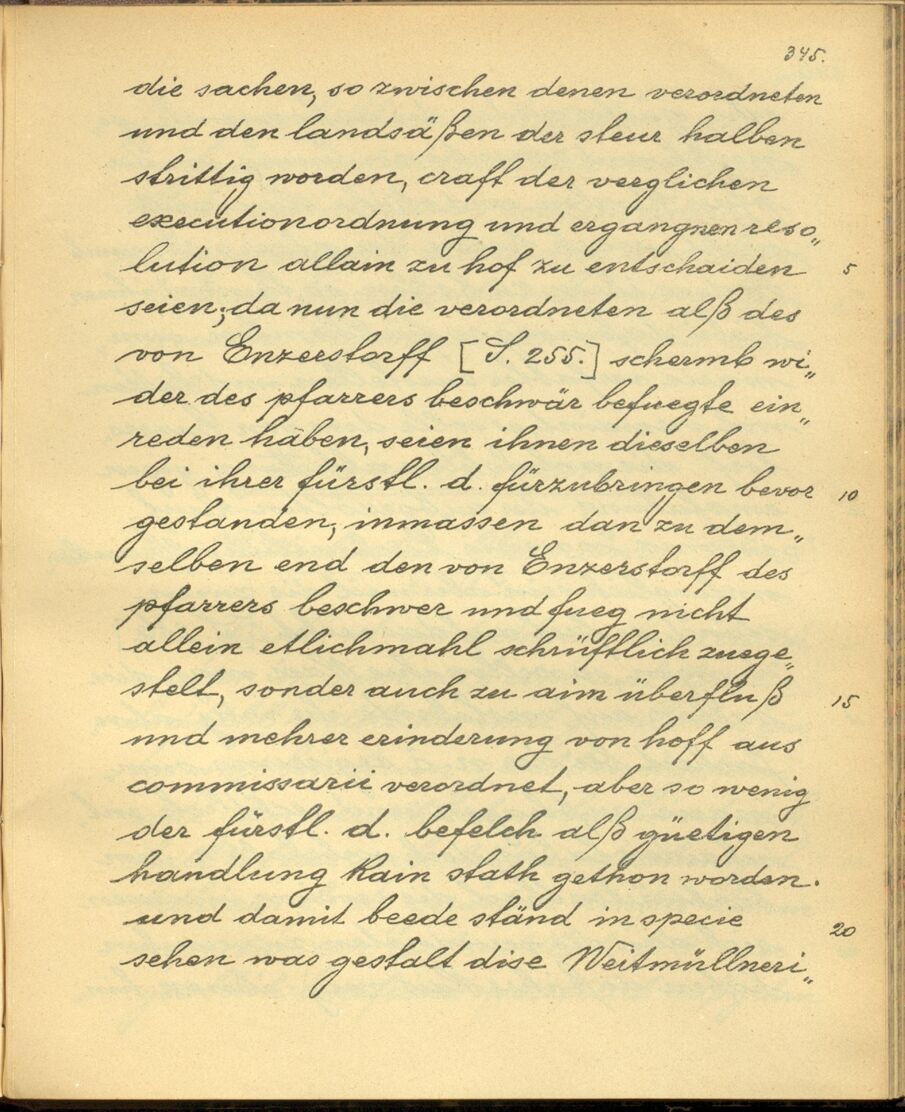 345.
die sachen, so zwischen denen verordneten
und den landsäßen der steur halben
strittig worden, craft der verglichen
executionordnung und ergangnen reso„
lution allain zu hof zu entschaiden 5
seien; da nun die verordneten alß des
von Enzerstorff [S. 255.] schermb wi„
der des pfarrers beschwär befuegte ein„
reden haben, seien ihnen dieselben
bei ihrer fürstl. d. fürzubringen bevor 10
gestanden; inmassen dan zu dem„
selben end den von Enzerstorff des
pfarrers beschwer und fueg nicht
allein etlichmahl schrüftlich zuege„
stelt, sonder auch zu aim überfluß 15
und mehrer erinderung von hoff aus
commissarii verordnet, aber so wenig
der fürstl. d. befelch alß güetigen
handlung kain stath gethon worden.
und damit beede ständ in specie 20
sehen was gestalt dise Weitmüllneri„